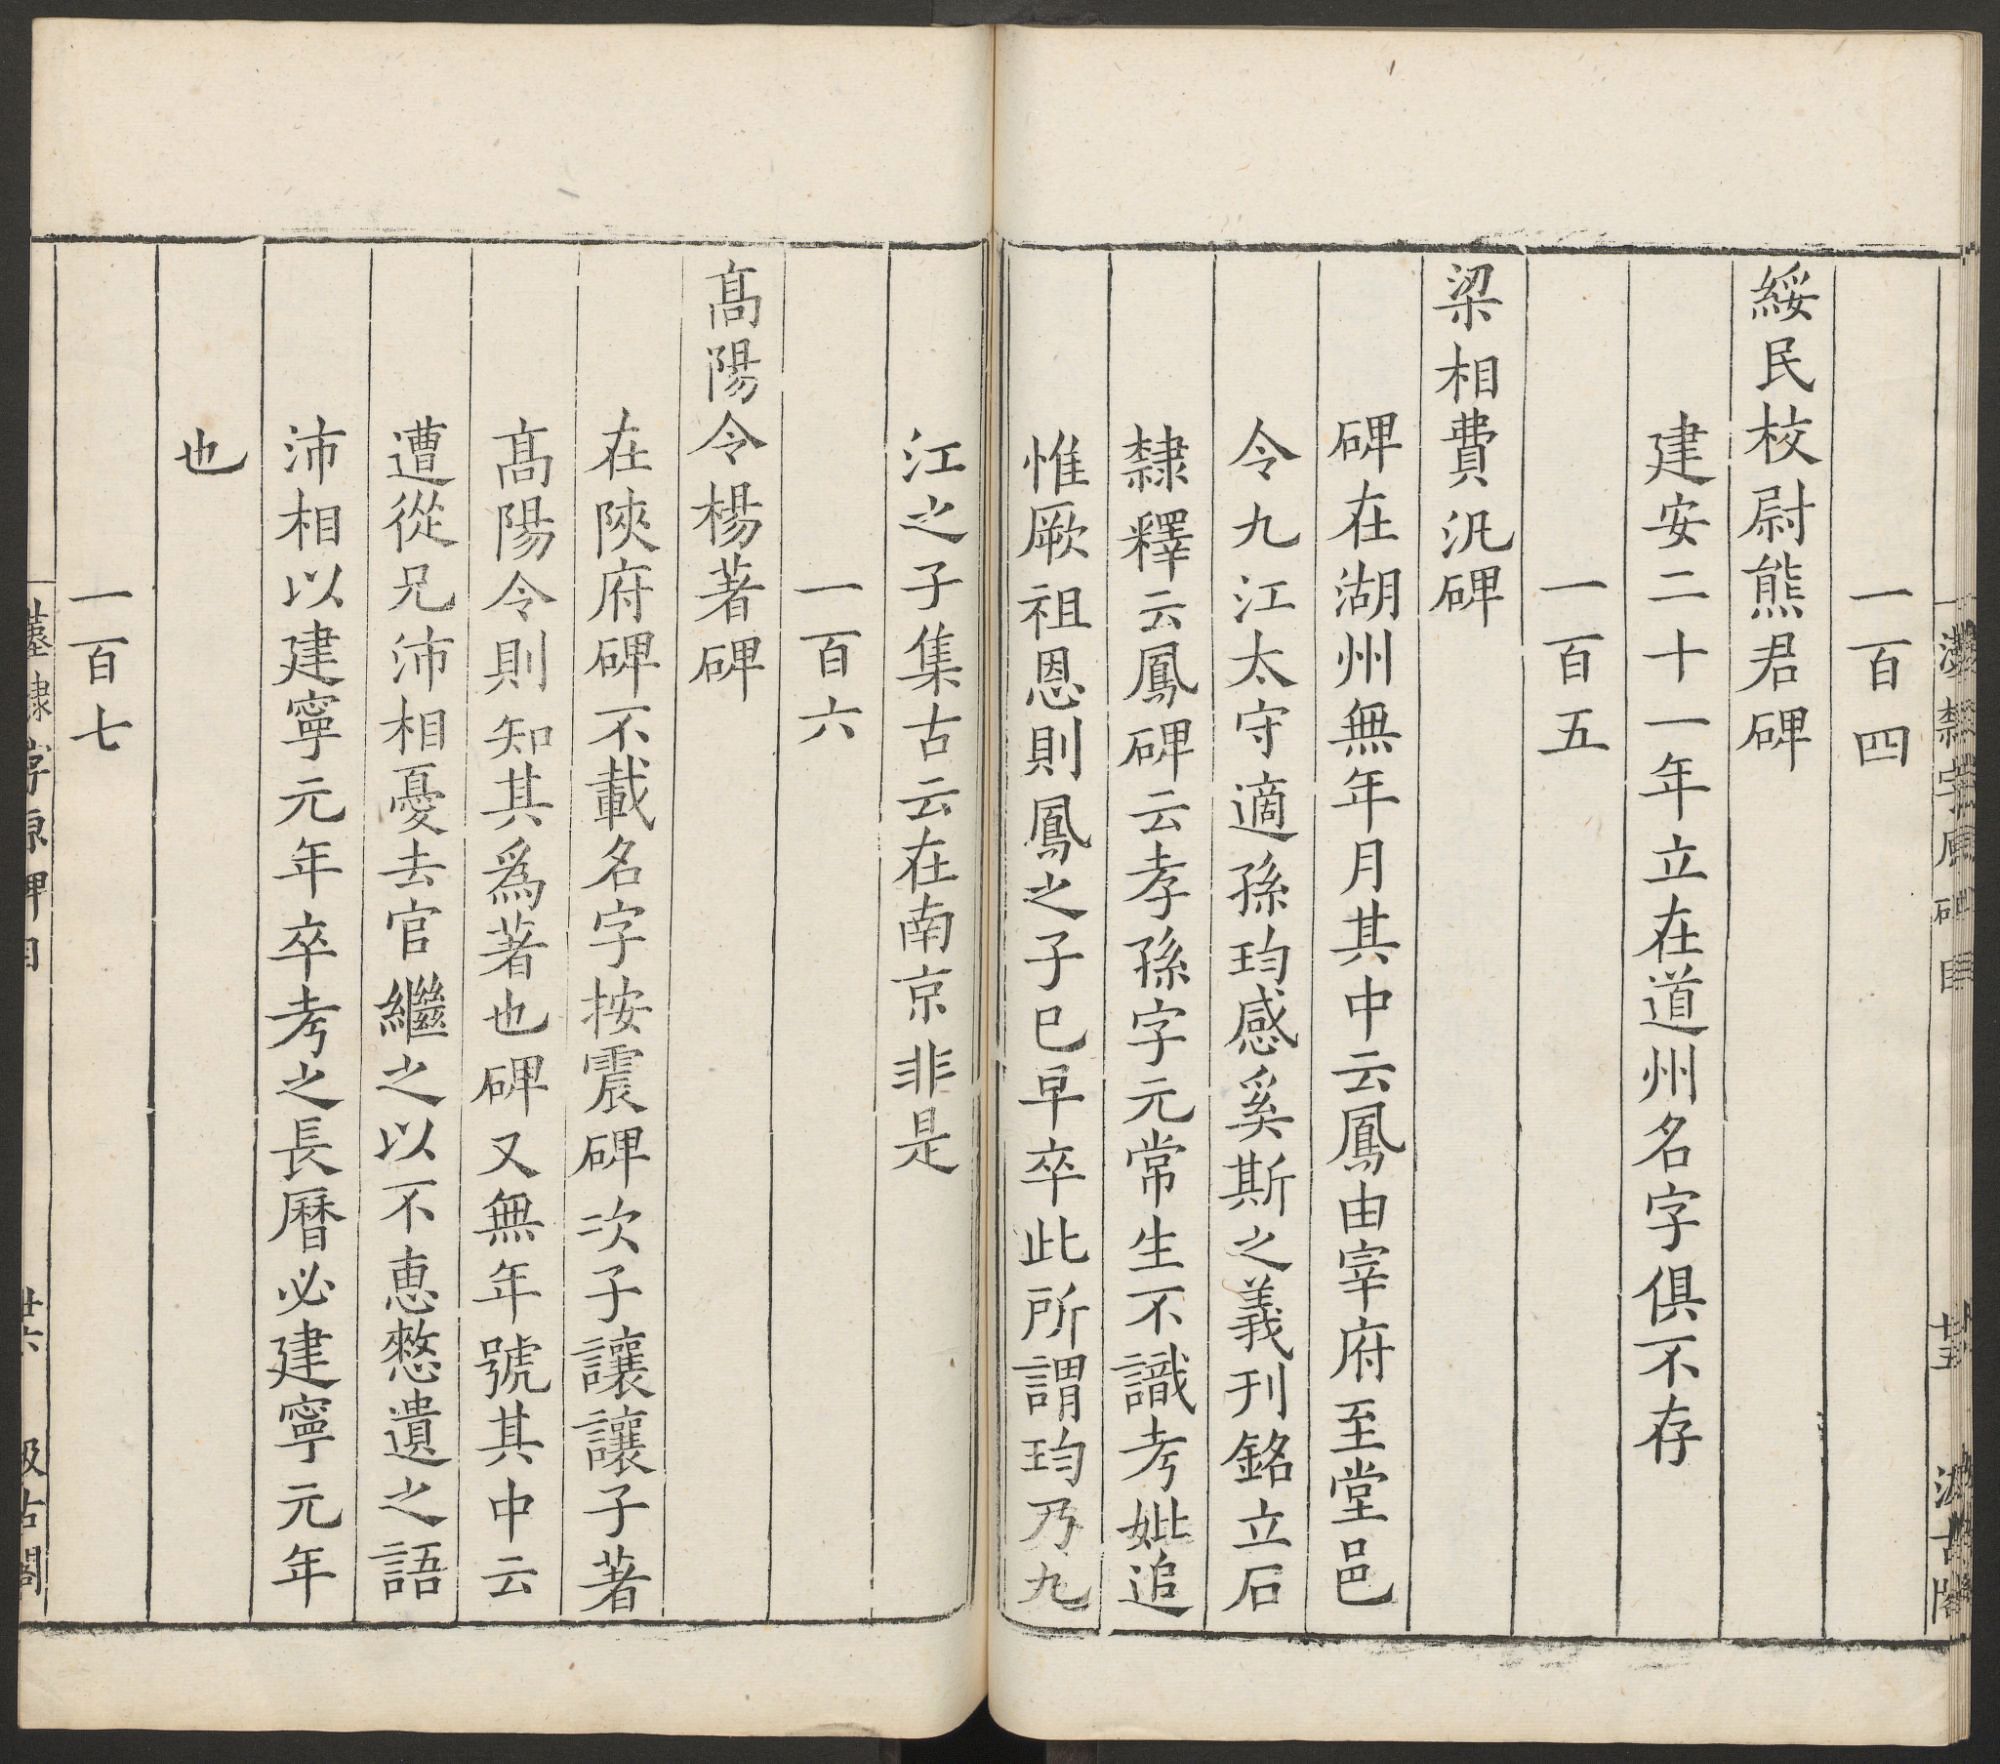 一百四
綏民校尉熊君碑
建安二十一年立在道州名字俱不存
一百五
梁相費汎碑
碑在湖州無年月其中云鳳由宰府至堂邑
令九江太守適孫均感奚斯之義刊銘立石
隸釋云鳳碑云孝孫字元常生不識考妣追
惟厥祖恩則鳳之子巳早卒此所謂均乃九
江之子集古云在南京非是
一百六
髙陽令楊著碑
在陜府碑不載名字按震碑次子讓讓子著
髙陽令則知其爲著也碑又無年號其中云
遭從兄沛相憂去官繼之以不恵憗遺之語
沛相以建寧元年卒考之長曆必建寧元年
也
一百七